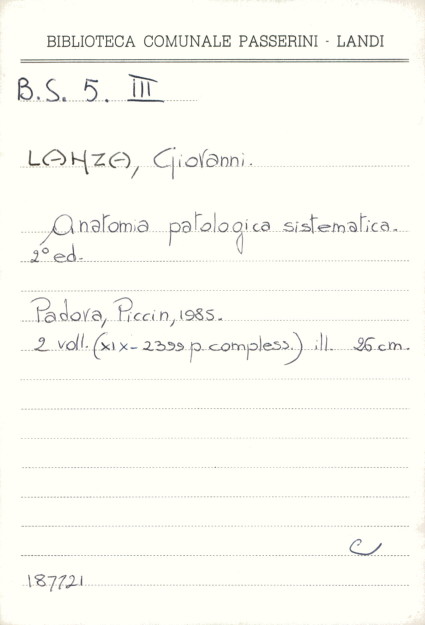 BIBLIOTECA COMUNALE PASSERINI - LANDI
B.S. 5. III
LANZA, Giovanni.
Anatomia patologica sistematica.
2° ed.
Padova, Piccin, 1985.
2 voll. (XIX-2399 p. compless.) ill. 26 cm.
C
187721